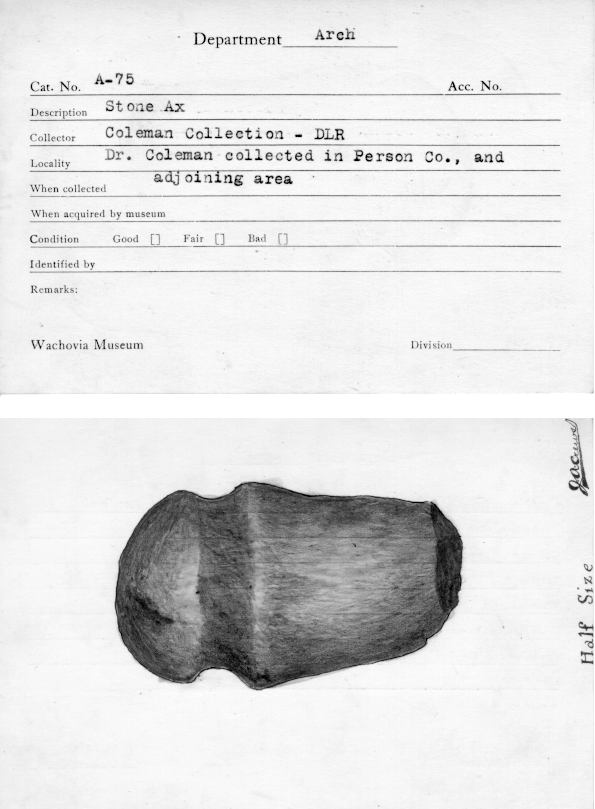 Department Arch
Cat. No. A-75 Acc. No.
Description Stone Ax
Collector Coleman Collection - DLR
Locality Dr. Coleman collected in Person Co., and
adjoining area
When collected
When acquired by museum
Condition Good [] Fair [] Bad []
Identified by
Remarks:
Wachovia Museum Division
Half Size